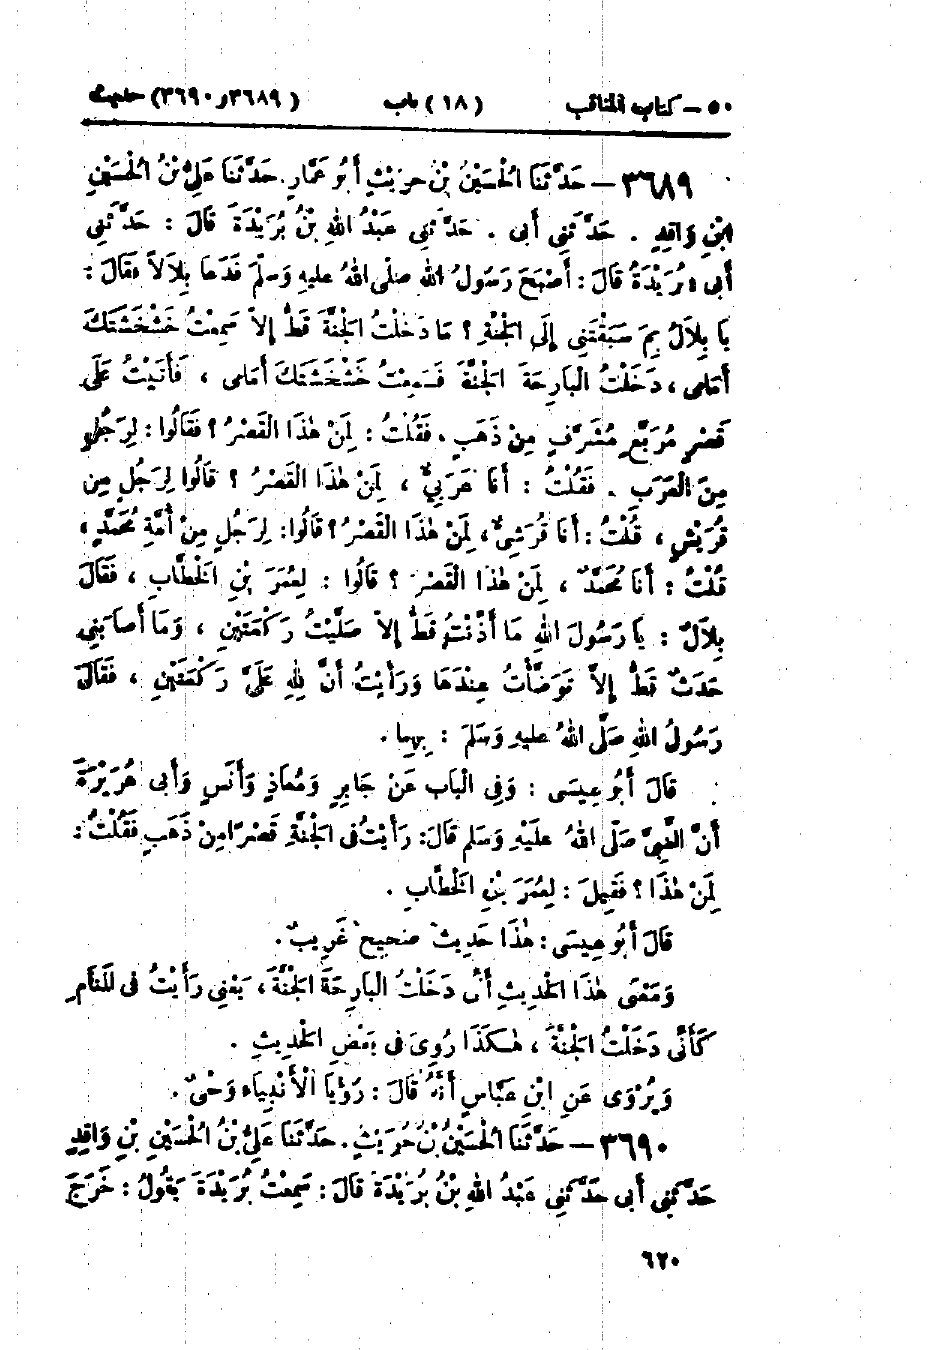 ٥٠ – كتاب المناقب (١٨) باب (٣٦٨٩ و ٣٦٩٠) حديث
٣٦٨٩ – حَدَّثَنَا الْحُسَيْنُ بْنُ حُرَيْثٍ أَبُو عَمَّارٍ. حَدَّثَنَا عَلِيُّ بْنُ الْحُسَيْنِ
ابْنِ وَاقِدٍ . حَدَّثَنِي أَبِى . حَدَّثَنِي عَبْدُ اللهِ بْنُ بُرَيْدَةَ قَالَ : حَدَّثَنِي
أَبِى بُرَيْدَةُ قَالَ : أَصْبَحَ رَسُولُ اللهِ صلَّى اللهُ عليهِ وَسلَّمَ فَدَعَا بِلَالاً فقَالَ :
يَا بِلَالُ بِمَ سَبَقْتَنِى إِلَى الْجَنَّةِ ؟ مَا دَخَلْتُ الْجَنَّةَ قَطُّ إِلاَّ سَمِعْتُ خَشْخَشَتَكَ
أَمَامِى ، دَخَلْتُ الْبَارِحَةَ الْجَنَّةَ فَسَمِعْتُ خَشْخَشَتَكَ أَمَامِى ، فَأَتَيْتُ عَلَى
قَصْرٍ مُرَبَّعٍ مُشْرَفٍ مِنْ ذَهَبٍ . فَقُلْتُ : لِمَنْ هٰذَا الْقَصْرُ ؟ فَقَالُوا : لِرَجُلٍ
مِنَ الْعَرَبِ . فَقُلْتُ : أَنَا عَرَبِيٌّ ، لِمَنْ هٰذَا الْقَصْرُ ؟ قَالُوا لِرَجُلٍ مِنْ
قُرَيْشٍ ، قُلْتُ : أَنَا قُرَشِيٌّ ، لِمَنْ هٰذَا الْقَصْرُ ؟ قَالُوا: لِرَجُلٍ مِنْ أُمَّةِ مُحَمَّدٍ ،
قُلْتُ : أَنَا مُحَمَّدٌ ، لِمَنْ هٰذَا الْقَصْرُ ؟ قَالُوا : لِعُمَرَ بْنِ الْخَطَّابِ ، فَقَالَ
بِلَالٌ : يَا رَسُولَ اللهِ مَا أَذَّنْتُ قَطُّ إِلاَّ صَلَّيْتُ رَكْعَتَيْنِ ، وَمَا أَصَابَنِي
حَدَثٌ قَطُّ إِلاَّ تَوَضَّأْتُ عِنْدَهَا وَرَأَيْتُ أَنَّ لِلهِ عَلَيَّ رَكْعَتَيْنِ ، فَقَالَ
رَسُولُ اللهِ صَلَّى اللهُ عليهِ وَسَلَّمَ : بِهِما .
قَالَ أَبُو عِيسَى : وَفِي الْبَابِ عَنْ جَابِرٍ وَمُعَاذٍ وَأَنَسٍ وَأَبِى هُرَيْرَةَ
أَنَّ النَّبِيَّ صَلَّى اللهُ عَلَيْهِ وَسَلَّمَ قَالَ: رَأَيْتُ فِى الْجَنَّةِ قَصْرًا مِنْ ذَهَبٍ فَقُلْتُ :
لِمَنْ هٰذَا ؟ فَقِيلَ : لِعُمَرَ بْنِ الْخَطَّابِ .
قَالَ أَبُو عِيسَى : هٰذَا حَدِيثٌ صَحِيحٌ غَرِيبٌ .
وَمَعْنَى هٰذَا الْحَدِيثِ أَنِّى دَخَلْتُ الْبَارِحَةَ الْجَنَّةَ ، يَعْنِى رَأَيْتُ فِى الْمَنَامِ
كَأَنِّى دَخَلْتُ الْجَنَّةَ ، هٰكَذَا رُوِىَ فِى بَعْضِ الْحَدِيثِ .
وَيُرْوَى عَنِ ابْنِ عَبَّاسٍ أَنَّهُ قَالَ : رُؤْيَا الْأَنْبِيَاءِ وَحْىٌ .
٣٦٩٠ – حَدَّثَنَا الْحُسَيْنُ بْنُ حُرَيْثٍ. حَدَّثَنَا عَلِيُّ بْنُ الْحُسَيْنِ بْنِ وَاقِدٍ
حَدَّثَنِي أَبِى حَدَّثَنِي عَبْدُ اللهِ بْنُ بُرَيْدَةَ قَالَ : سَمِعْتُ بُرَيْدَةَ يَقُولُ : خَرَجَ
٦٢٠